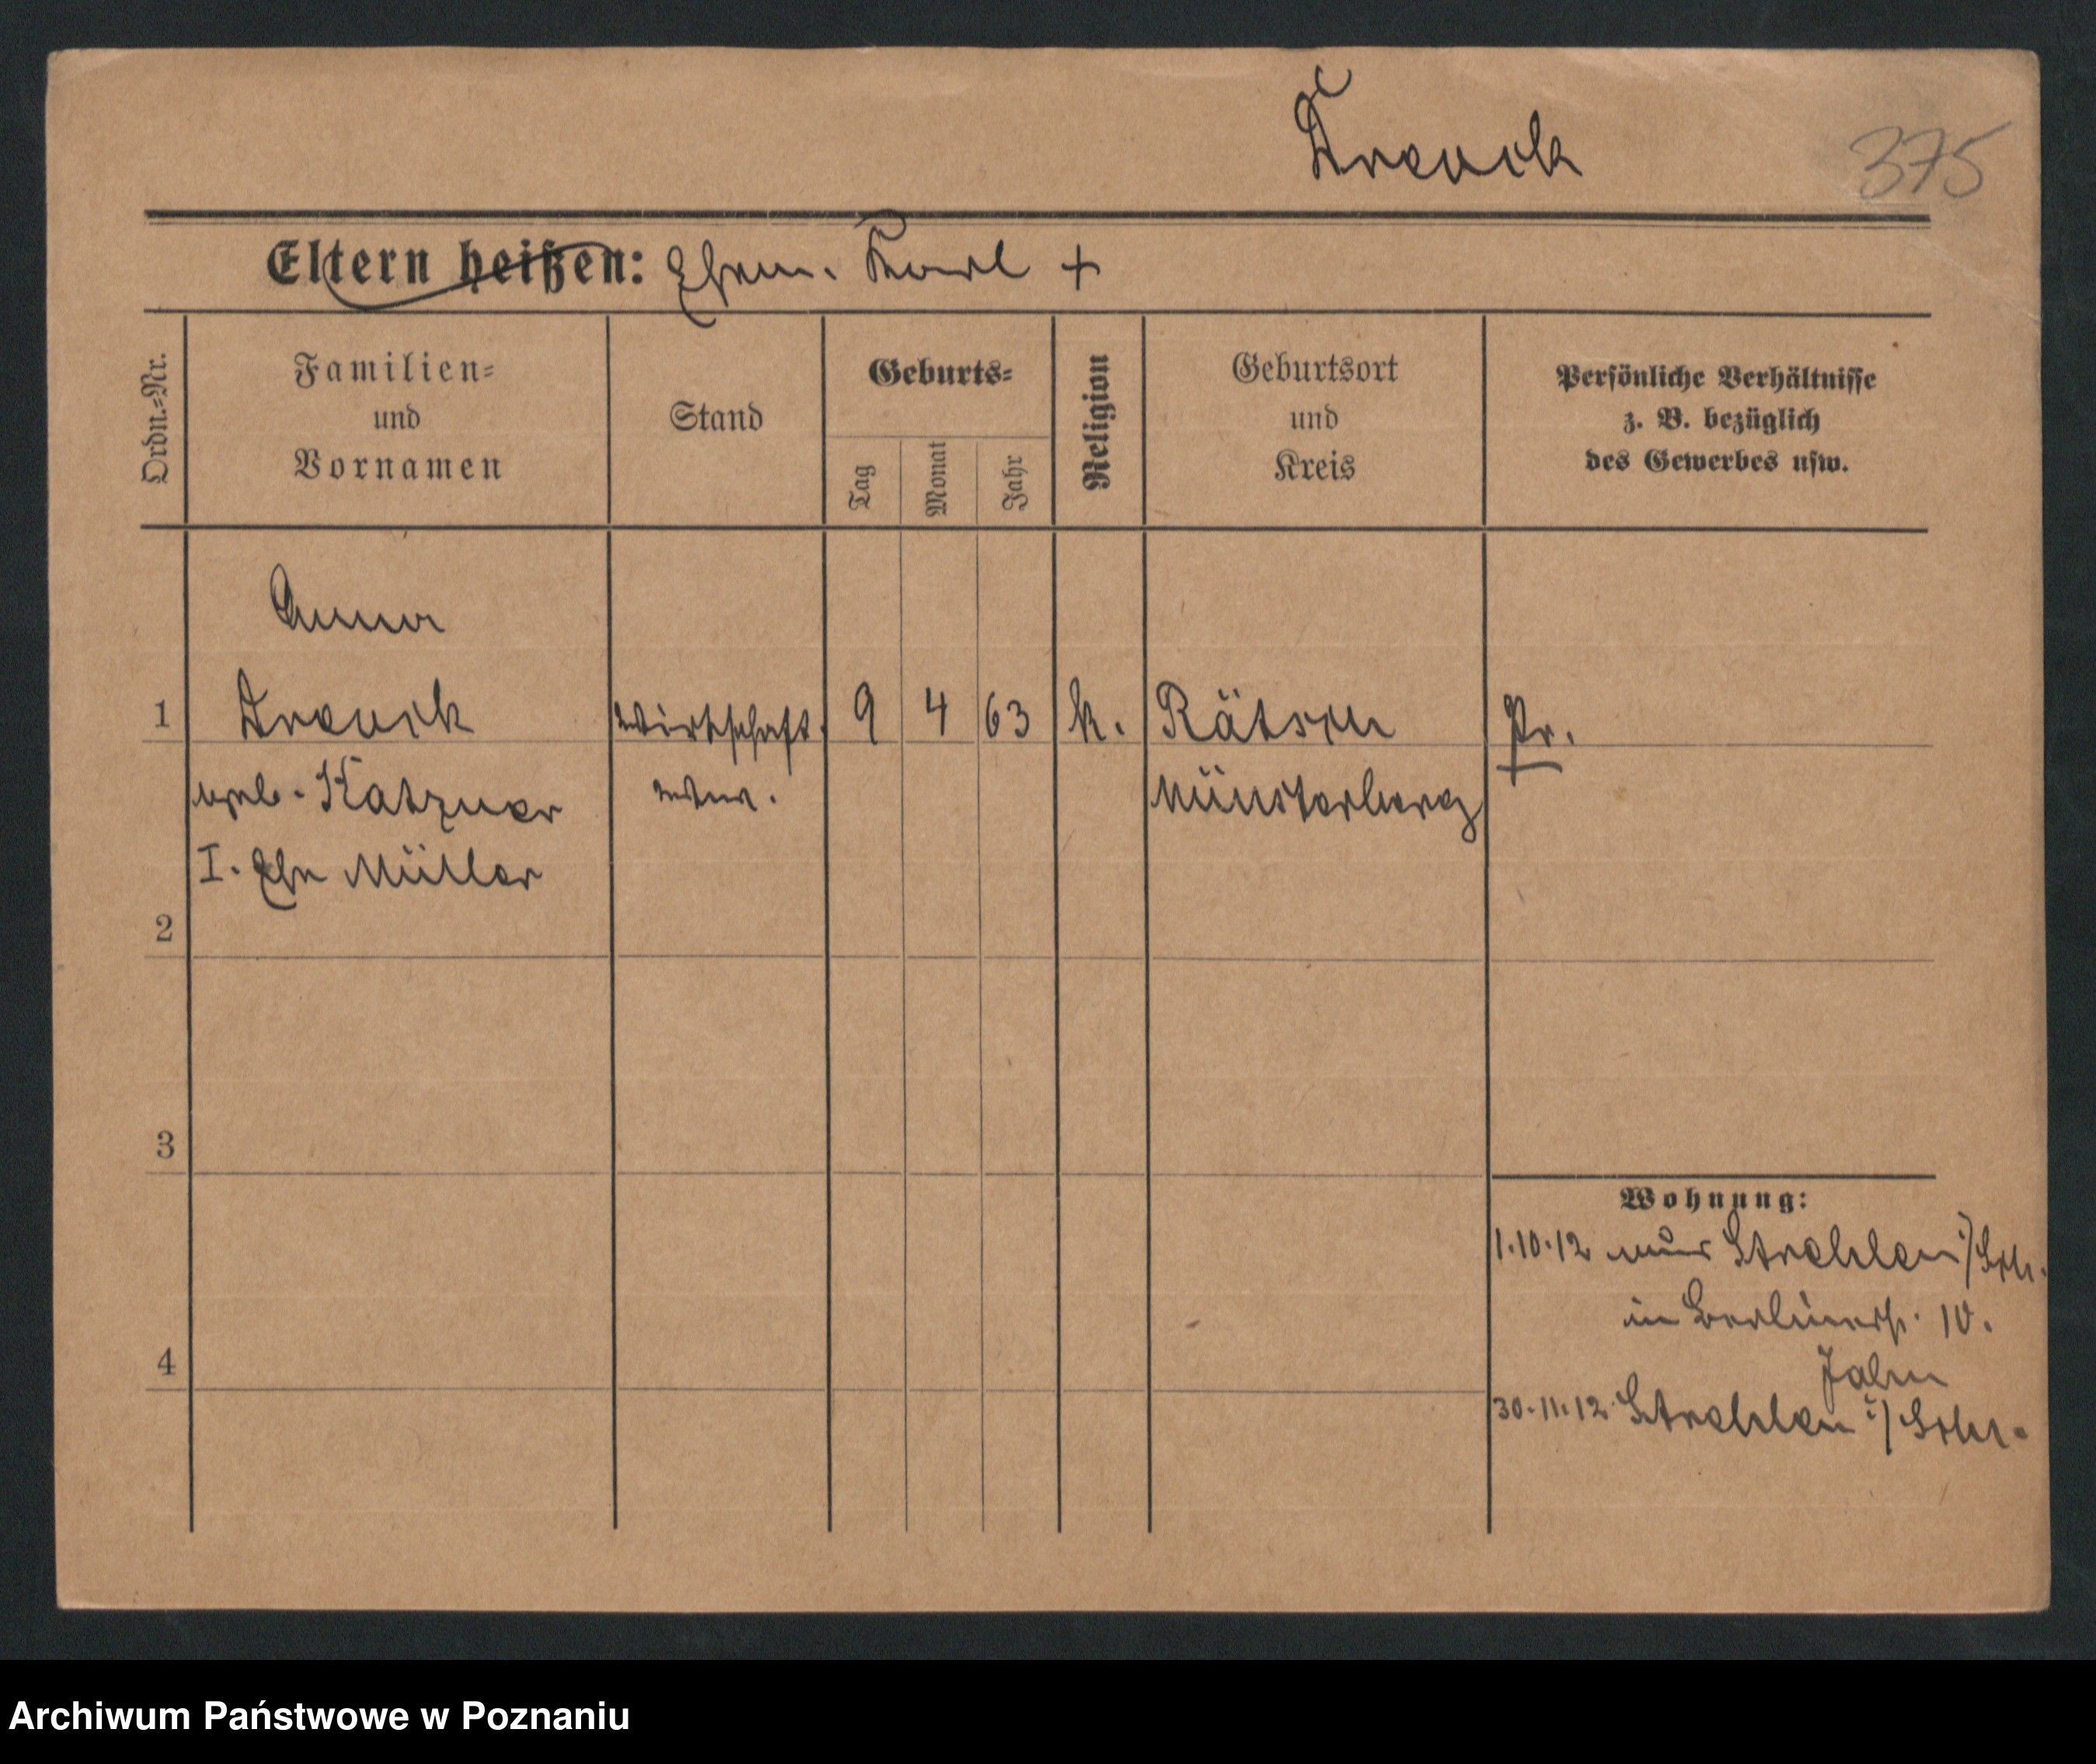 Drenick
375
Eltern heißen: Ehem. Karl +
Ordn.-Nr.
Familien-
und
Vornamen
Stand
Geburts-
Tag
Monat
Jahr
Religion
Geburtsort
und
Kreis
Persönliche Verhältnisse
z. B. bezüglich
des Gewerbes usw.
Anna
1 wirtschaft. 9 4 63 k. Pr.
geb. Katzner Münsterberg
I. Ehe Müller
2
3
4
Wohnung:
1.10.12 aus Strehlen i/Schl.
in Berlinerstr. 10.
Jahn
30.11.12. Strehlen i/Schl.
Archiwum Państwowe w Poznaniu